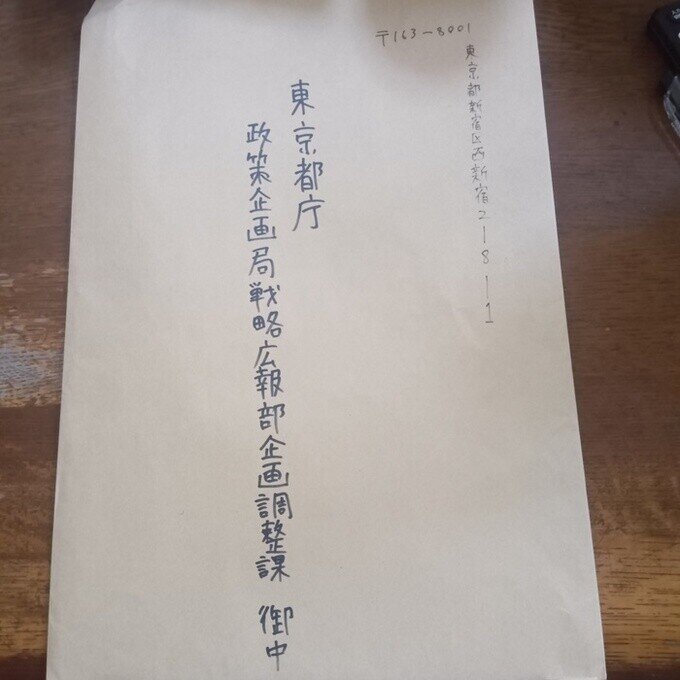 〒163-8001
東京都新宿区西新宿2-8-1
東京都庁
政策企画局戦略広報部企画調整課 御中